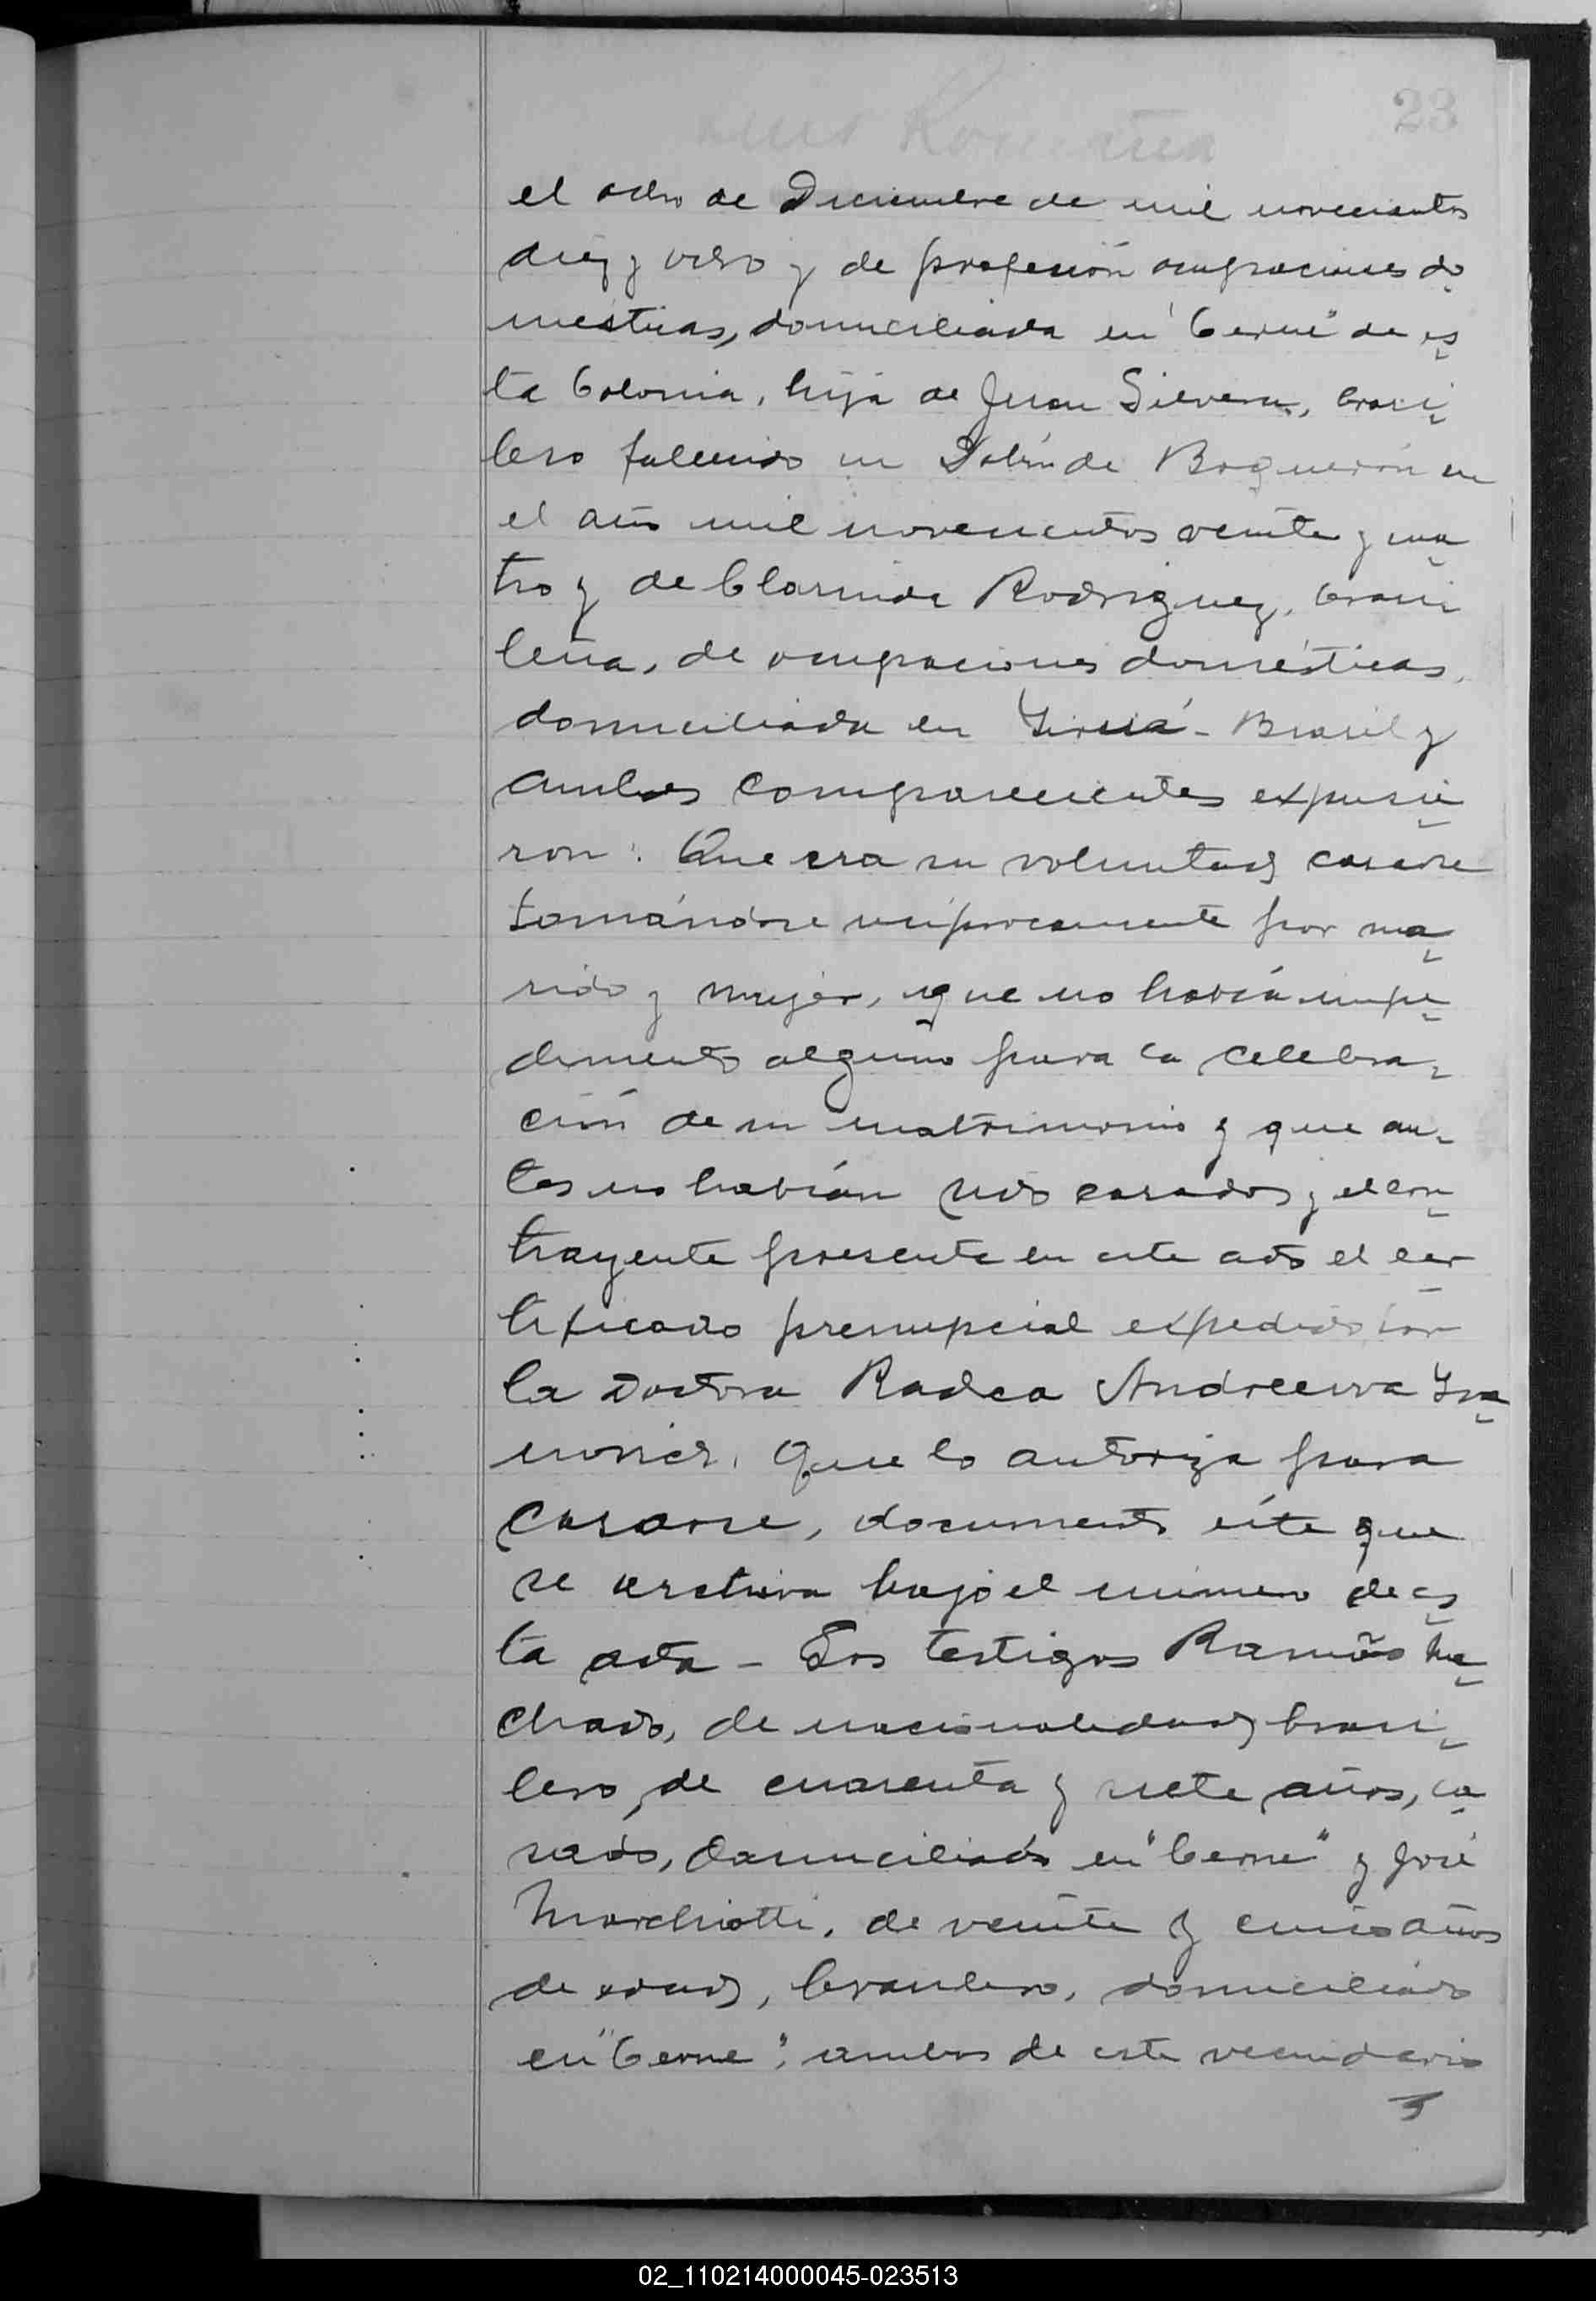 23
el ocho de Diciembre de mil novecientos
diez y ocho y de profesión ocupaciones do
mésticas, domiciliada en "Cerne" de es
ta Colonia, hija de Juan Silvera, brasi
lero fallecido en de Boquerón en
el año mil novecientos veinte y cua
tro y de Clarinda Rodriguez, brasi
leña, de ocupaciones domésticas,
domiciliada en - Brasil y
ambos comparecientes expusie
ron: Que era su voluntad casarse
tomándose recíprocamente por ma
rido y mujer, que no había impe
dimento alguno para la celebra
ción de su matrimonio y que an
tes no habían sido casados y el con
trayente presenta en este acto el cer
tificado prenupcial expedido por
la Doctora Radca Andreewa Iva
que lo autoriza para
casarse, documento éste que
se archiva bajo el número de es
ta acta - Los testigos Ramão Ma
chado, de nacionalidad brasi
lero, de cuarenta y siete años, ca
sado, domiciliado en "Cerne" y José
Marchiotti, de veinte y cinco años
de edad, brasilero, domiciliado
en "Cerne", ambos de este vecindario
02_110214000045-023513